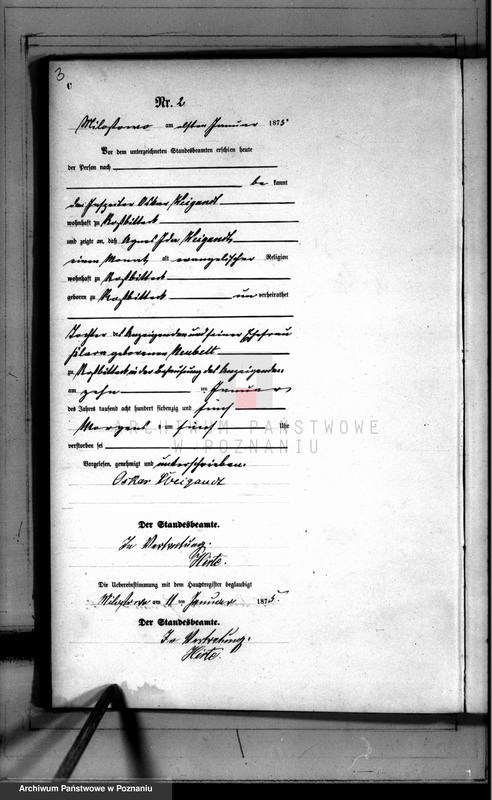 3
C
Nr. 2
Milostowo am elften Januar 1875
Vor dem unterzeichneten Standesbeamten erschien heute
der Person nach
be kannt
der Oskar Weigandt
wohnhaft zu
und zeigte an, daß Agnes Ida Weigandt,
einen Monat alt evangelischer Religion
wohnhaft zu
geboren zu un verheirathet
Tochter des Anzeigenden und seiner Ehefrau
geborenen
zu in der Behausung des Anzeigenden
am zehn ten Januar
des Jahres tausend acht hundert siebenzig und fünf
Morgens um fünf Uhr
verstorben sei
Vorgelesen, genehmigt und unterschrieben.
Oskar Weigandt
Der Standesbeamte.
In Vertretung.
Hirte.
Die Uebereinstimmung mit dem Hauptregister beglaubigt
Milostowo am 11 ten Januar 1875
Der Standesbeamte.
In Vertretung.
Hirte.
ARCHIWUM PAŃSTWOWE
W POZNANIU
Archiwum Państwowe w Poznaniu